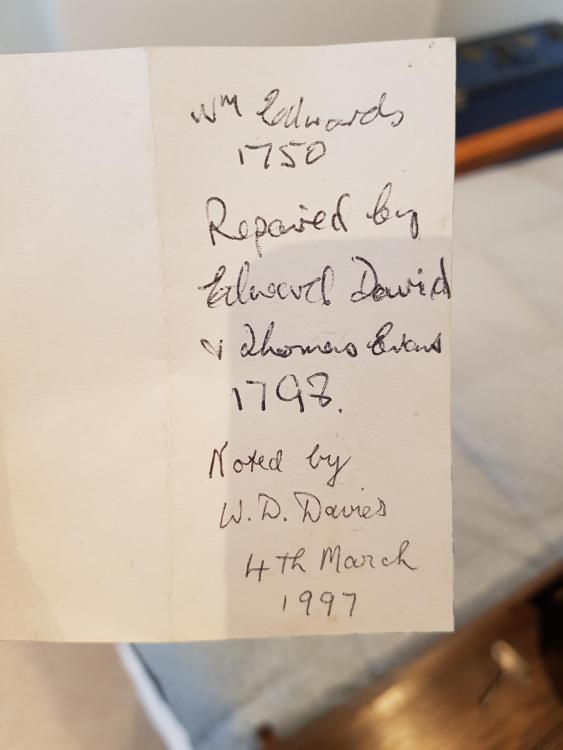 Wm Edwards
1750
Repaired by
Edward David
& Thomas Evans
1798.
Noted by
W. D. Davies
4th March
1997